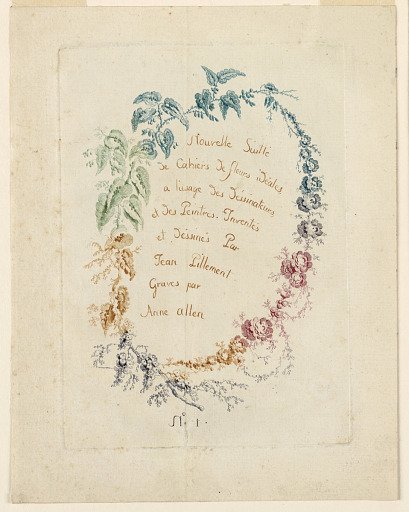 Nouvelle Suitte
de Cahiers de fleurs idéales
a l'usage des Dessinateurs
et des Peintres. Inventés
et Dessinés Par
Jean Pillement
Gravés par
Anne Allen
N° 1.